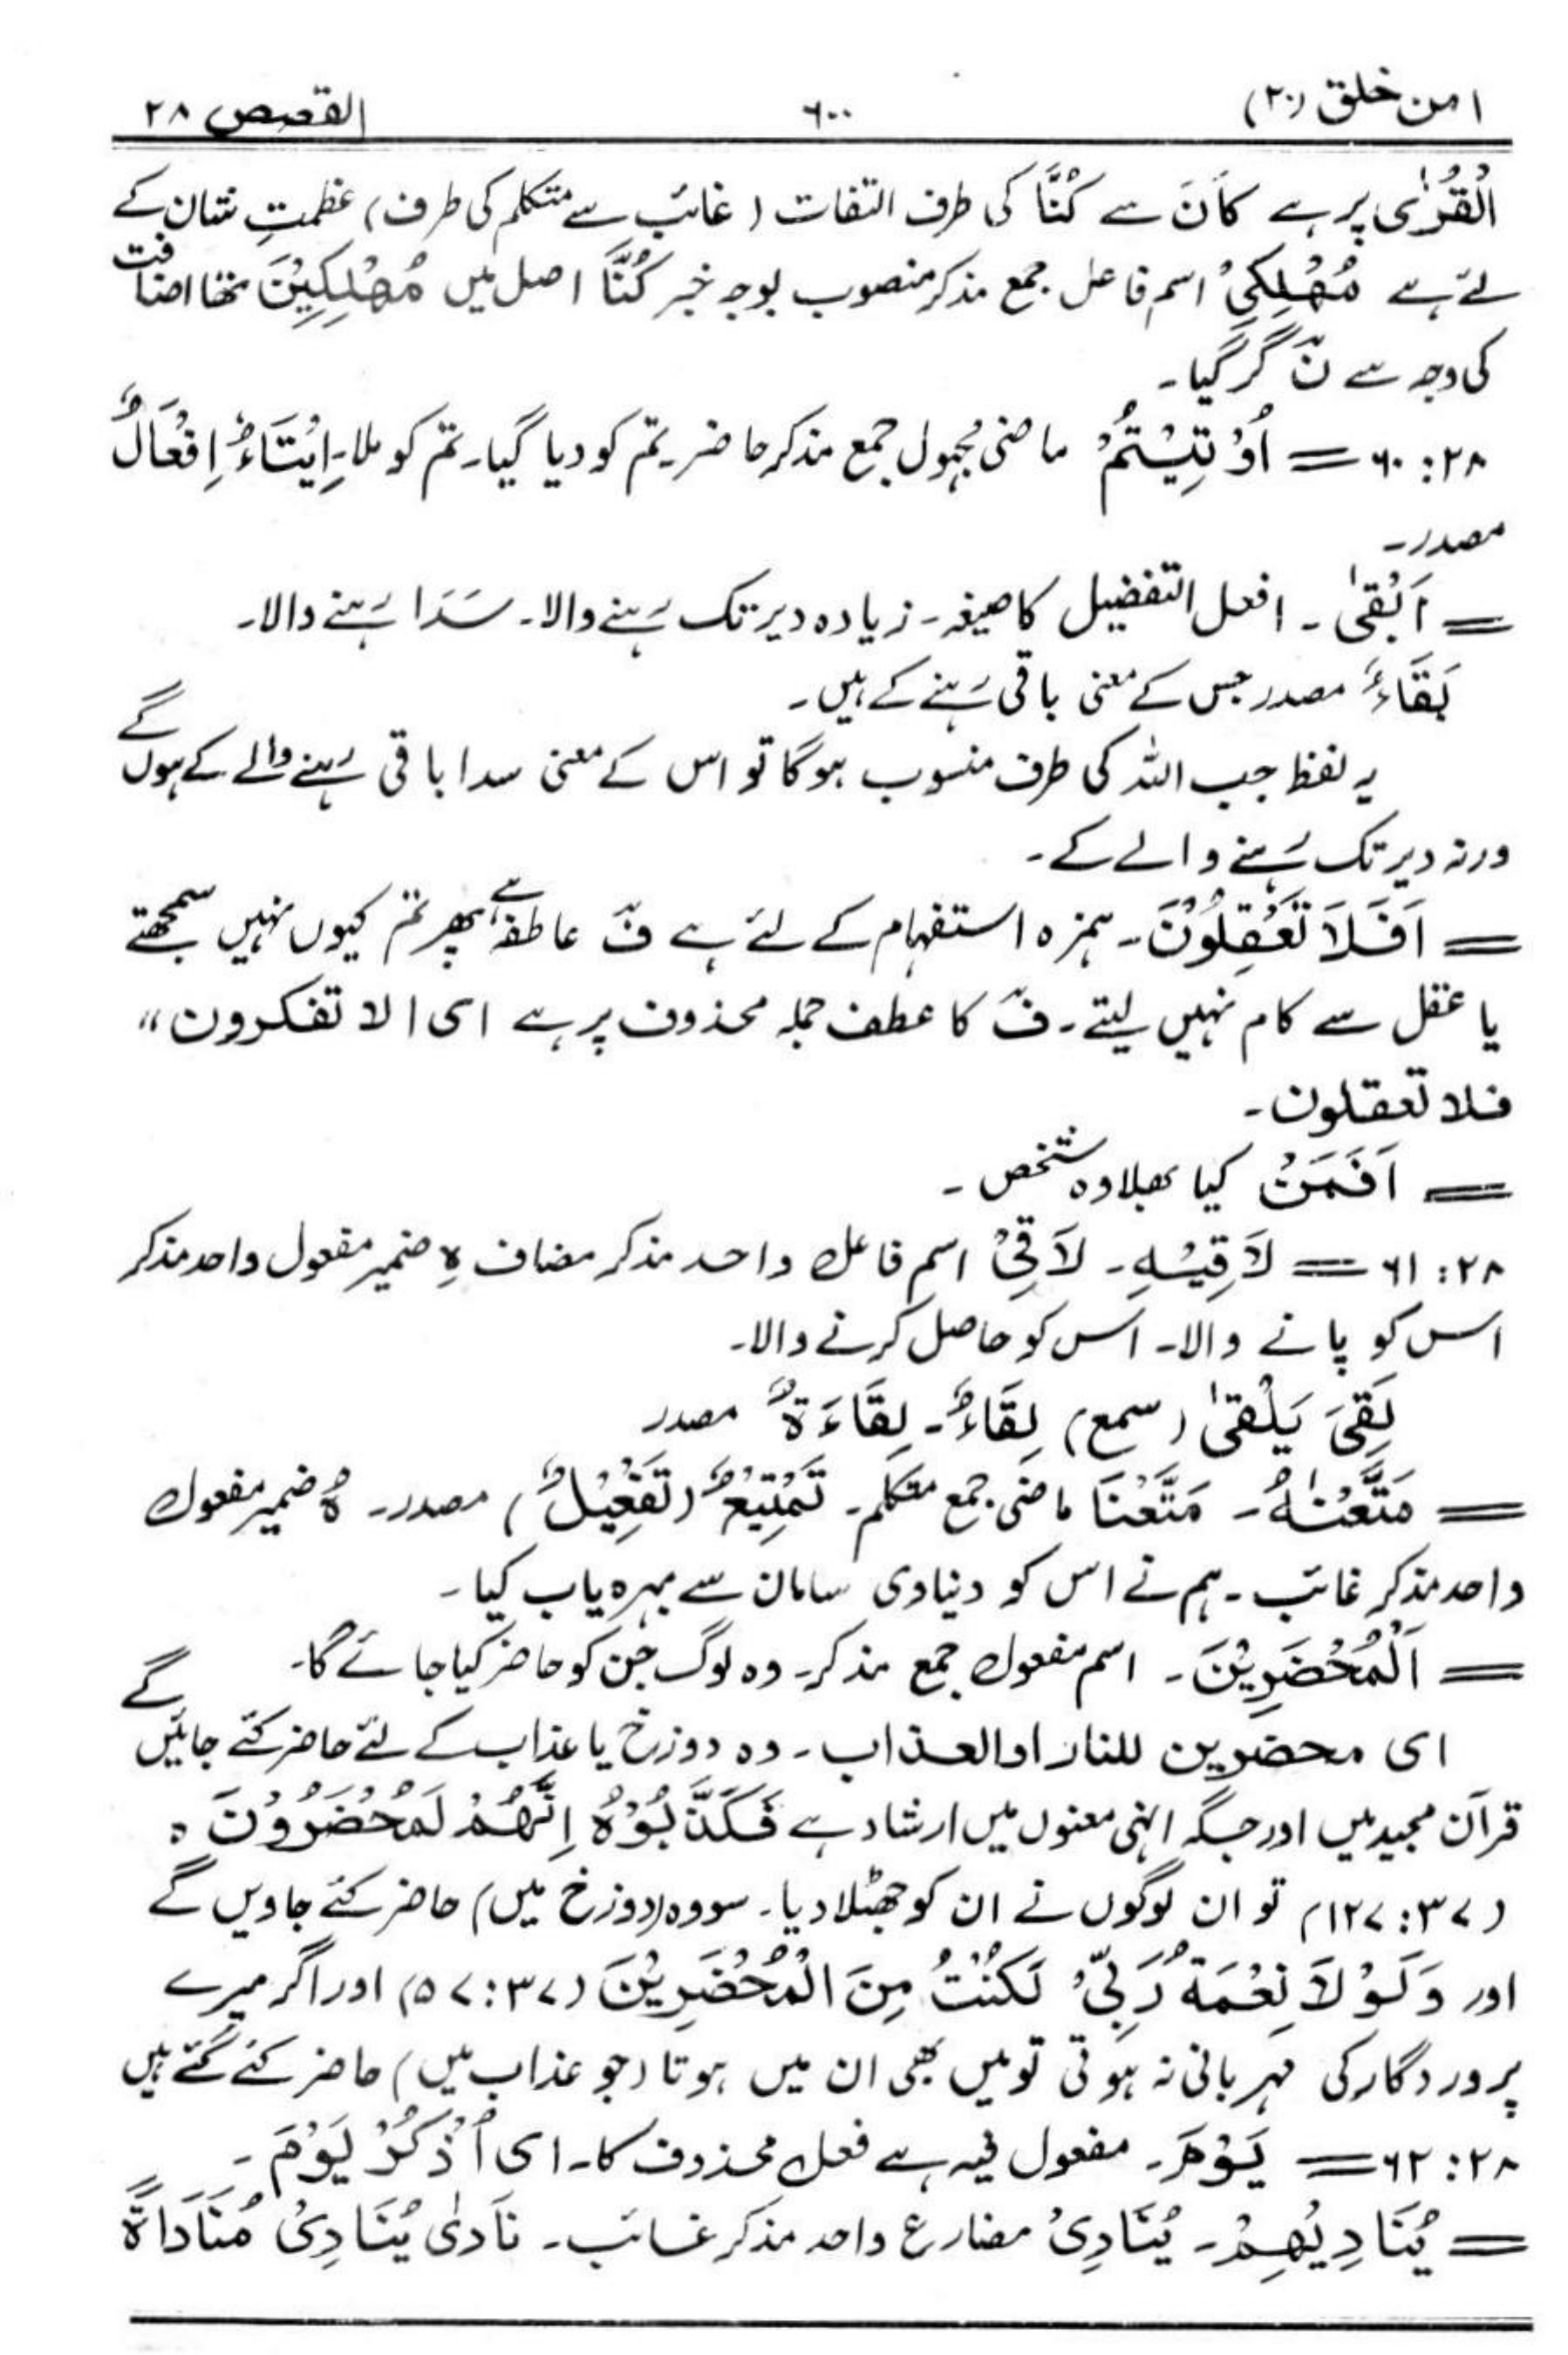 امن خلق (۲۰) ۶۰۰ القصص ۲۸
الْقُرٰی پر ہے کَانَ سے کُنَّا کی طرف التفات (غائب سے متکلم کی طرف) عظمتِ شان کے
لئے ہے مُهْلِکِیْ اسم فاعل جمع مذکر منصوب بوجہ خبر کُنَّا اصل میں مُهْلِکِیْنَ تھا اضافت
کی وجہ سے نَ گر گیا۔
۲۸:۶۰ = اُوْتِیْتُمْ ماضی مجہول جمع مذکر حاضر تم کو دیا گیا۔ تم کو ملا۔ اِیْتَاءٌ اِفْعَالٌ
مصدر۔
= اَبْقٰی۔ افعل التفضیل کا صیغہ۔ زیادہ دیر تک رَہنے والا۔ سَدَا رَہنے والا۔
بَقَاءٌ مصدر جس کے معنی باقی رَہنے کے ہیں۔
یہ لفظ جب اللہ کی طرف منسوب ہوگا تو اس کے معنی سدا باقی رہنے والے کے ہوں گے
ورنہ دیر تک رَہنے والے کے۔
= اَفَلَا تَعْقِلُوْنَ۔ ہمزہ استفہام کے لئے ہے فَ عاطفہ ہے پھر تم کیوں نہیں سمجھتے
یا عقل سے کام نہیں لیتے۔ فَ کا عطف جملہ محذوف پر ہے ای الا تفکرون ،،
فلا تعقلون۔
= اَفَمَنْ کیا بھلا وہ شخص ۔
۲۸:۶۱ = لَاقِیْهِ۔ لَاقِیْ اسم فاعل واحد مذکر مضاف ہِ ضمیر مفعول واحد مذکر
اس کو پانے والا۔ اس کو حاصل کرنے والا۔
لَقِیَ یَلْقٰی (سمع) لِقَاءٌ۔ لِقَاءَةٌ مصدر
= مَتَّعْنٰهُ۔ مَتَّعْنَا ماضی جمع متکلم۔ تَمْتِیْعٌ (تَفْعِیْلٌ) مصدر۔ ہُ ضمیر مفعول
واحد مذکر غائب۔ ہم نے اس کو دنیاوی سامان سے بہرہ یاب کیا۔
= اَلْمُحْضَرِیْنَ۔ اسم مفعول جمع مذکر۔ وہ لوگ جن کو حاضر کیا جائے گا۔
ای محضرین للنار او العذاب۔ وہ دوزخ یا عذاب کے لئے حاضر کئے جائیں گے
قرآن مجید میں اور جگہ انہی معنوں میں ارشاد ہے فَکَذَّبُوْهُ اِنَّهُمْ لَمُحْضَرُوْنَ ہ
(۳۷:۱۲۷) تو ان لوگوں نے ان کو جھٹلا دیا۔ سو وہ (دوزخ میں) حاضر کئے جاویں گے
اور وَلَوْلَا نِعْمَةُ رَبِّیْ لَکُنْتُ مِنَ الْمُحْضَرِیْنَ (۳۷:۵۷) اور اگر میرے
پروردگار کی مہربانی نہ ہوتی تو میں بھی ان میں ہوتا (جو عذاب میں) حاضر کئے گئے ہیں
۲۸:۶۲ = یَوْمَ۔ مفعول فیہ ہے فعل محذوف کا۔ ای اُذْکُرْ یَوْمَ۔
= یُنَادِیْهِمْ۔ یُنَادِیْ مضارع واحد مذکر غائب۔ نَادٰی یُنَادِیْ مُنَادَاةً